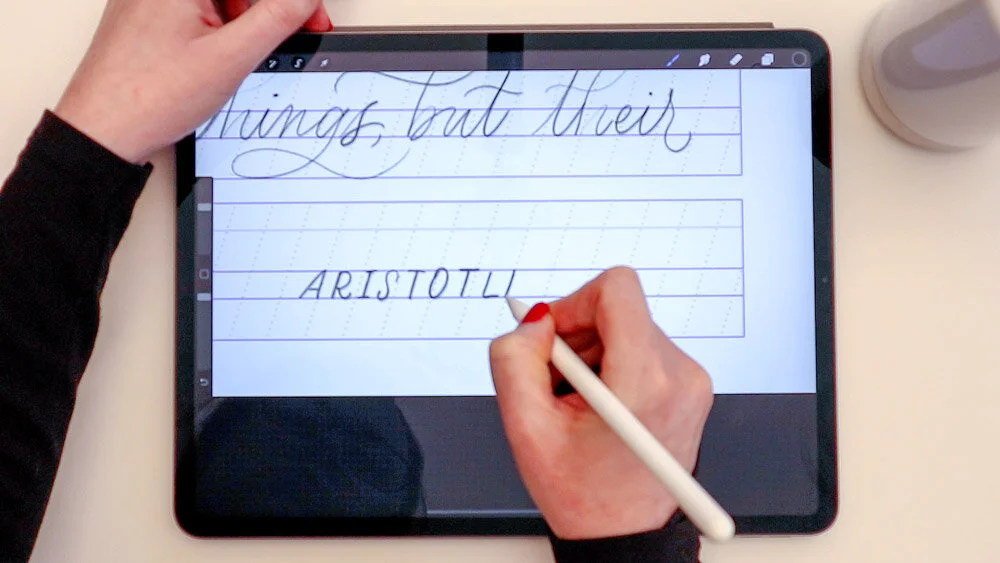 things, but their
ARISTOTLI